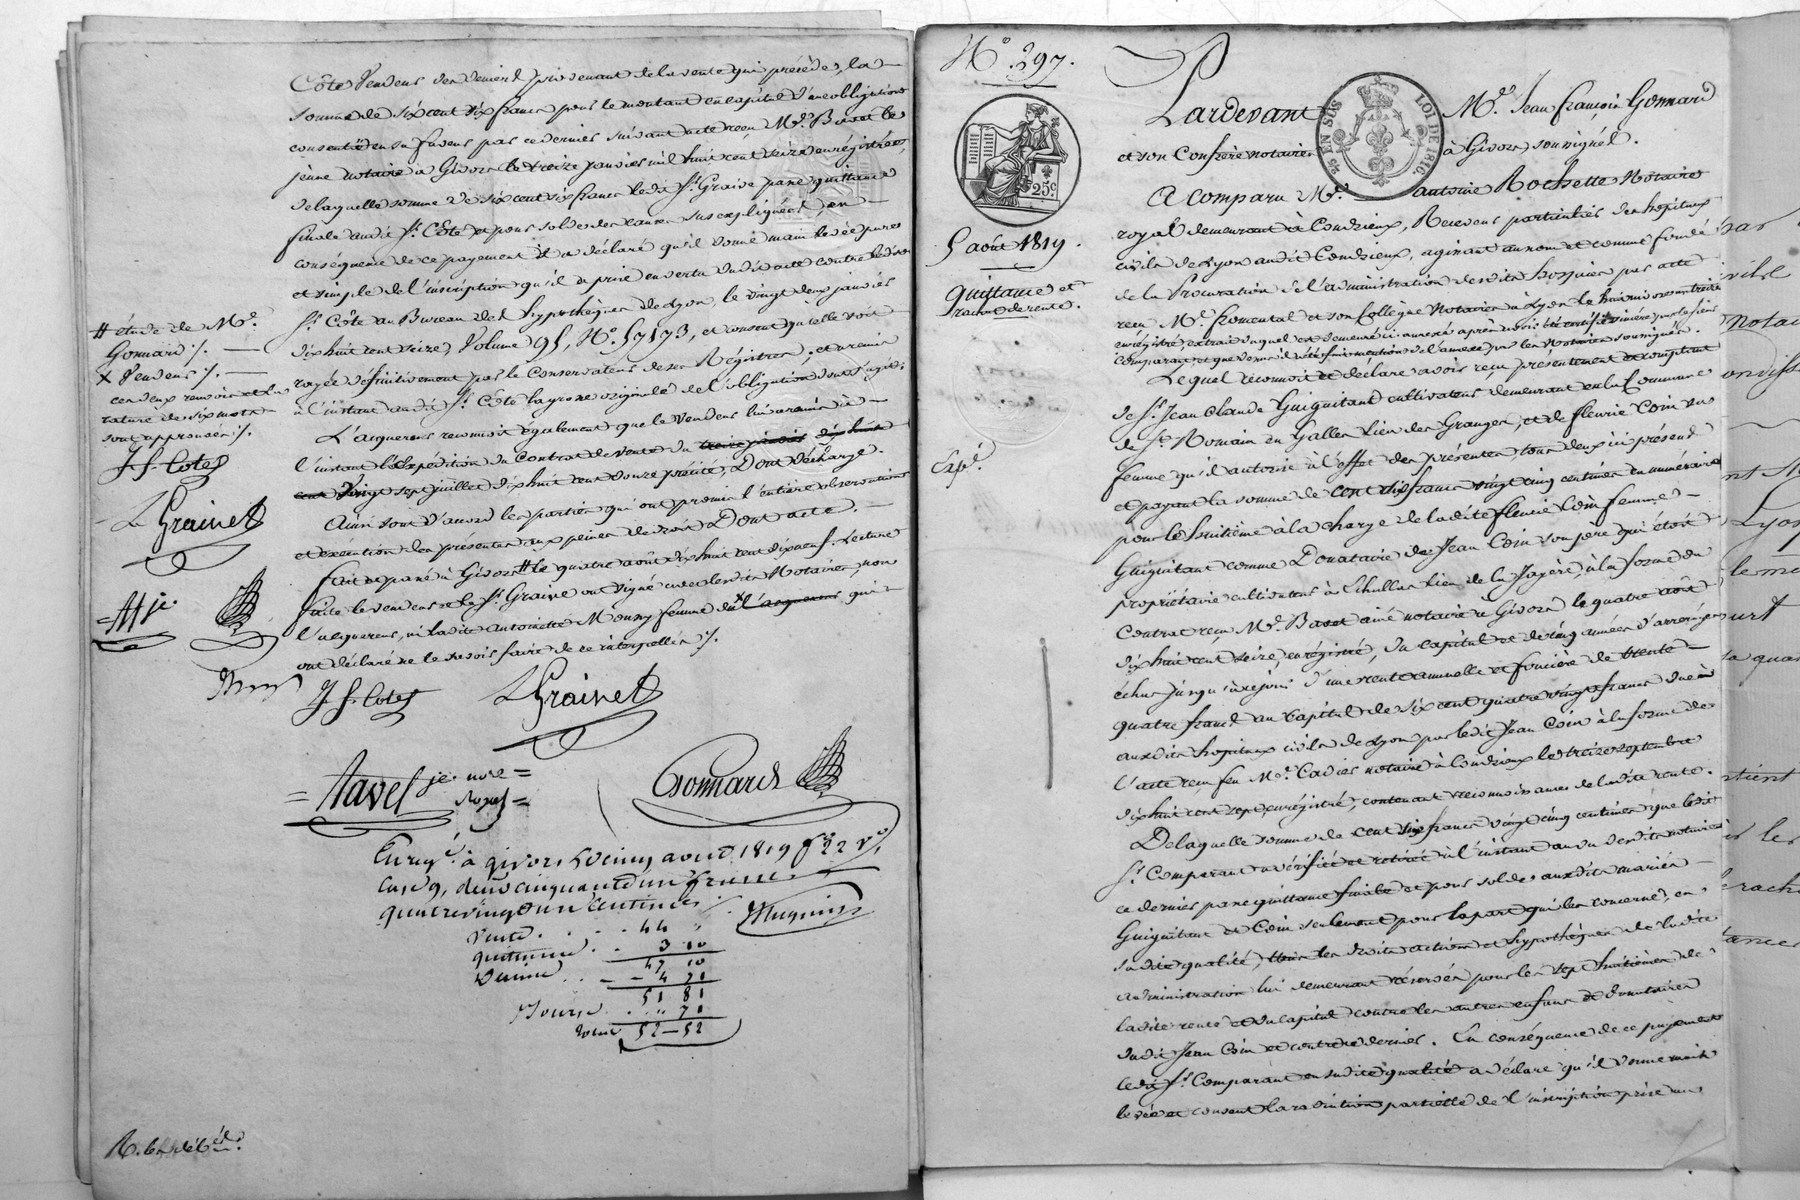 Côte vendeur des deniers provenant de la vente qui précède, la
somme de six cent six francs pour le montant en capital d'une obligation
consentie en sa faveur par ce dernier suivant acte reçu Me. Bavet le
jeune notaire à Givors le treize janvier mil huit cent seize enregistrée,
de laquelle somme de six cent six francs ledit Sr. Graive passe quittance
finale audit Sr. Côte et pour solde des causes sus expliquées, en
conséquence de ce payement il a déclaré qu'il donne main levée pure
et simple de l'inscription qu'il a prise en vertu dudit acte contre ledit
Sr. Côte au Bureau des hypothèques de Lyon, le vingt deux janvier
dix huit cent seize, Volume 95, No. 57173, et consent qu'elle soit
rayée définitivement par le Conservateur de ses Régistres, et a remis
à l'instant audit Sr. Côte la grosse originale de l'obligation dont s'agit.
L'acquereur reconnoit également que le vendeur lui a remis à
l'instant l'expédition du contrat de vente du treize janvier dix huit
cent vingt sept juillet dix huit cent douze précité, Dont décharge.
Ainsi sont d'accord les parties qui ont promis l'entière observation
et exécution des présentes aux peines de droit Dont acte.
Fait et passé à Givors # le quatre août dix huit cent dix neuf. Lecture
faite le vendeur et le Sr. Graive ont signé avec lesdits Notaires, non
l'acquereur, ni ladite Antoinette Mouny femme du x l'acquereur qui
ont déclaré ne le savoir faire de ce interpellés ./.
# étude de Me.
Gonnard ./.
x vendeur ./.
ces deux renvois et la
rature de six mots
sont approuvés ./.
J. f. Cotes
L Grainet
= Tf je.
J. f. Cotes L Grainet
= Tavel je. nore =
Royal =
Gonnard
Enregé. à givors le cinq aout 1819 fo 22 Vo.
case 9, deux cinquante un francs
quatre vingt un centimes
Mugnin
Vente . . . 44 "
quittance . . 3 10
47 10
Dixme . . 4 71
51 81
" 71
52 – 52
No. 297.
25c.
5 août 1819.
Quittance et
rachat de rente.
Expé.
25 EN SUS
LOI DE 1816.
Pardevant Me. Jean françois Gonnard
et son Confrère notaires à Givors, soussignés.
A comparu Me. antoine Rochette Notaire
royal demeurant à Condrieux, Receveur particulier des hôpitaux
civils de Lyon audit Condrieux, agissant au nom et comme fondé
de la Procuration de l'administration desdits hospices par acte
reçu Me. fromental et son Collègue Notaires à Lyon le
enregistré, extrait duquel est demeuré ci annexé après avoir été certifié sincère par le sieur
comparant, et que dessus il a été fait mention de l'annexe par les Notaires soussignés.
Lequel reconnoit et déclare avoir reçu présentement et comptant
de Sr. Jean Claude Guiguitant cultivateur demeurant en la Commune
de St. Romain en Gallier lieu des Granges, et de fleurie Coin sa
femme qu'il autorise à l'effet des présentes, tous deux ici présens
et payant la somme de cent dix francs vingt cinq centimes en numéraire
pour le huitième à la charge de ladite fleurie Coin femme
Guiguitant comme Donataire de Jean Coin son père qui étoit
propriétaire cultivateur à Echallas lieu de la Jayère, à la forme du
Contrat reçu Me. Bavet ainé notaire à Givors le quatre août
dix huit cent seize, enregistré, du capital et de cinq années d'arrérages
échus jusqu'à ce jour d'une rente annuelle et foncière de trente
quatre francs au capital de six cent quatre vingt francs due
auxdits hôpitaux civils de Lyon par ledit Jean Coin à la forme de
l'acte reçu feu Me. Cadier notaire à Condrieux le treize septembre
dix huit cent sept, enregistré, contenant reconnoissance de ladite rente.
De laquelle somme de cent dix francs vingt cinq centimes que ledit
Sr. Comparant a vérifiée et retirée à l'instant au vu desdits notaires
ce dernier passe quittance finale et pour solde auxdits mariés
Guiguitant et Coin seulement pour la part qui les concerne, en
sa dite qualité, tous les droits actions et hypothèques de ladite
administration lui demeurant réservés pour les sept huitièmes de
ladite rente et du capital contre les autres enfans et donataires
dudit Jean Coin et contre ce dernier. En conséquence de ce payement
ledit Sr. Comparant en sadite qualité a déclaré qu'il donne main
levée et consent la radiation partielle de l'inscription prise au